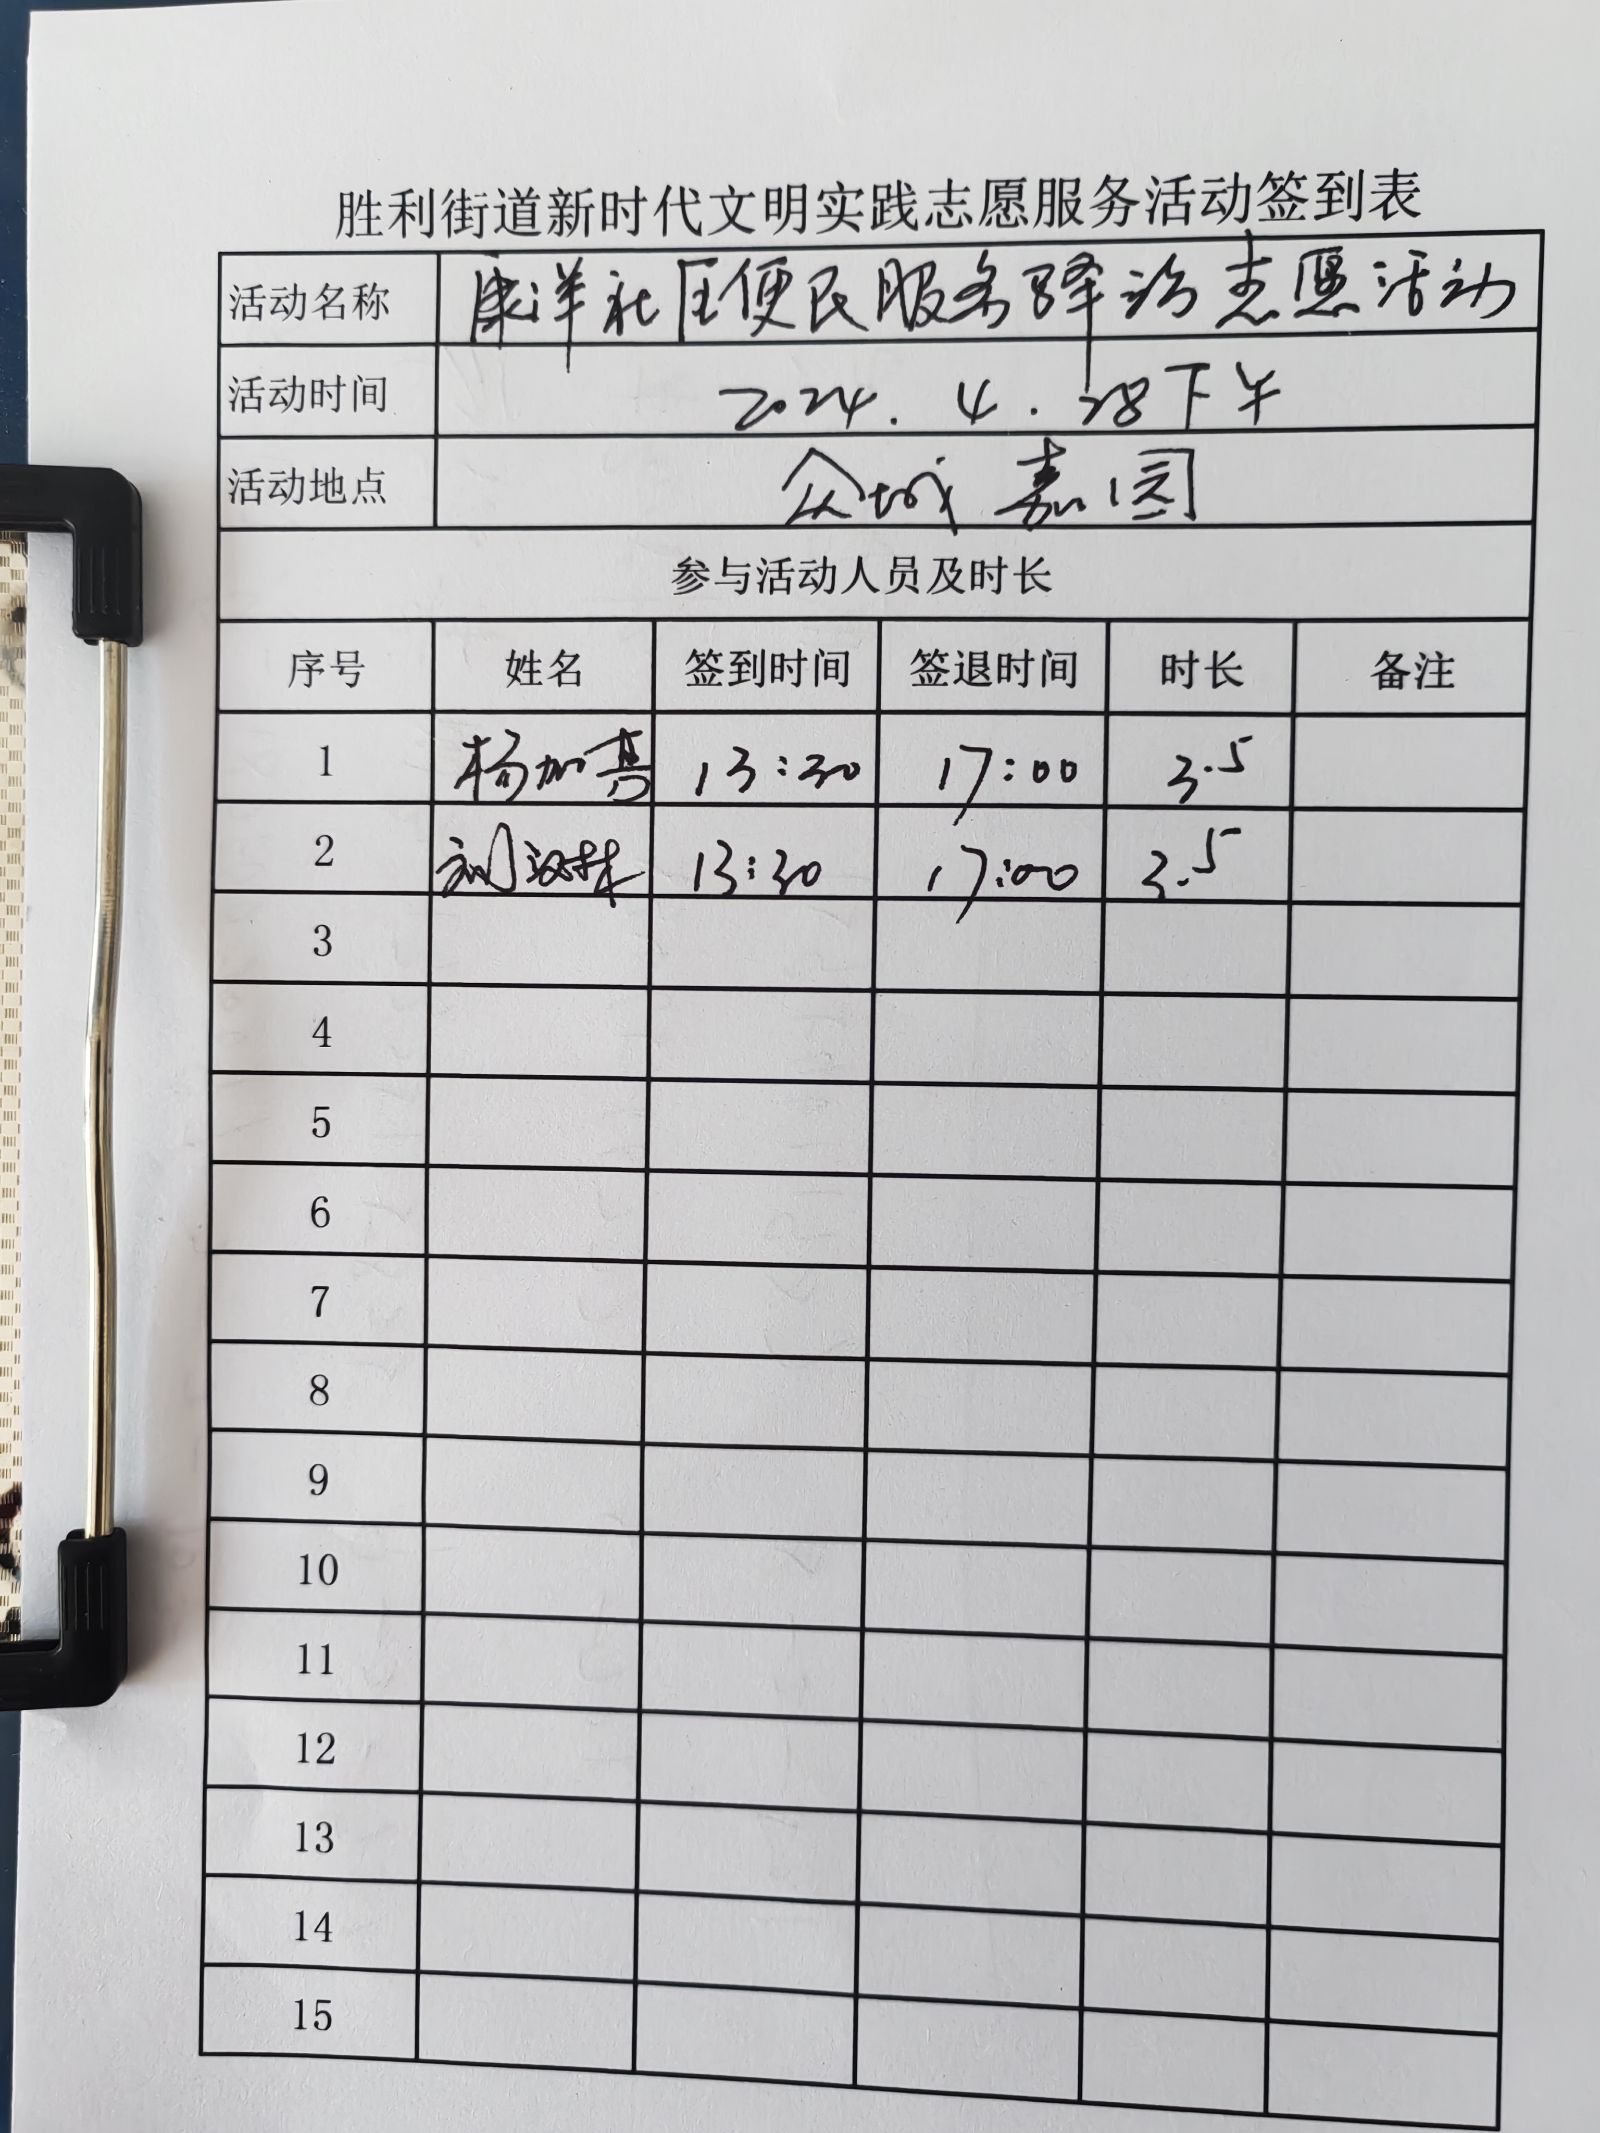 胜利街道新时代文明实践志愿服务活动签到表
活动名称 康洋社区便民服务驿站志愿活动
活动时间 2024.4.28下午
活动地点 众城嘉园
参与活动人员及时长
序号 姓名 签到时间 签退时间 时长 备注
1 杨加 13:30 17:00 3.5
2 刘汉林 13:30 17:00 3.5
3
4
5
6
7
8
9
10
11
12
13
14
15